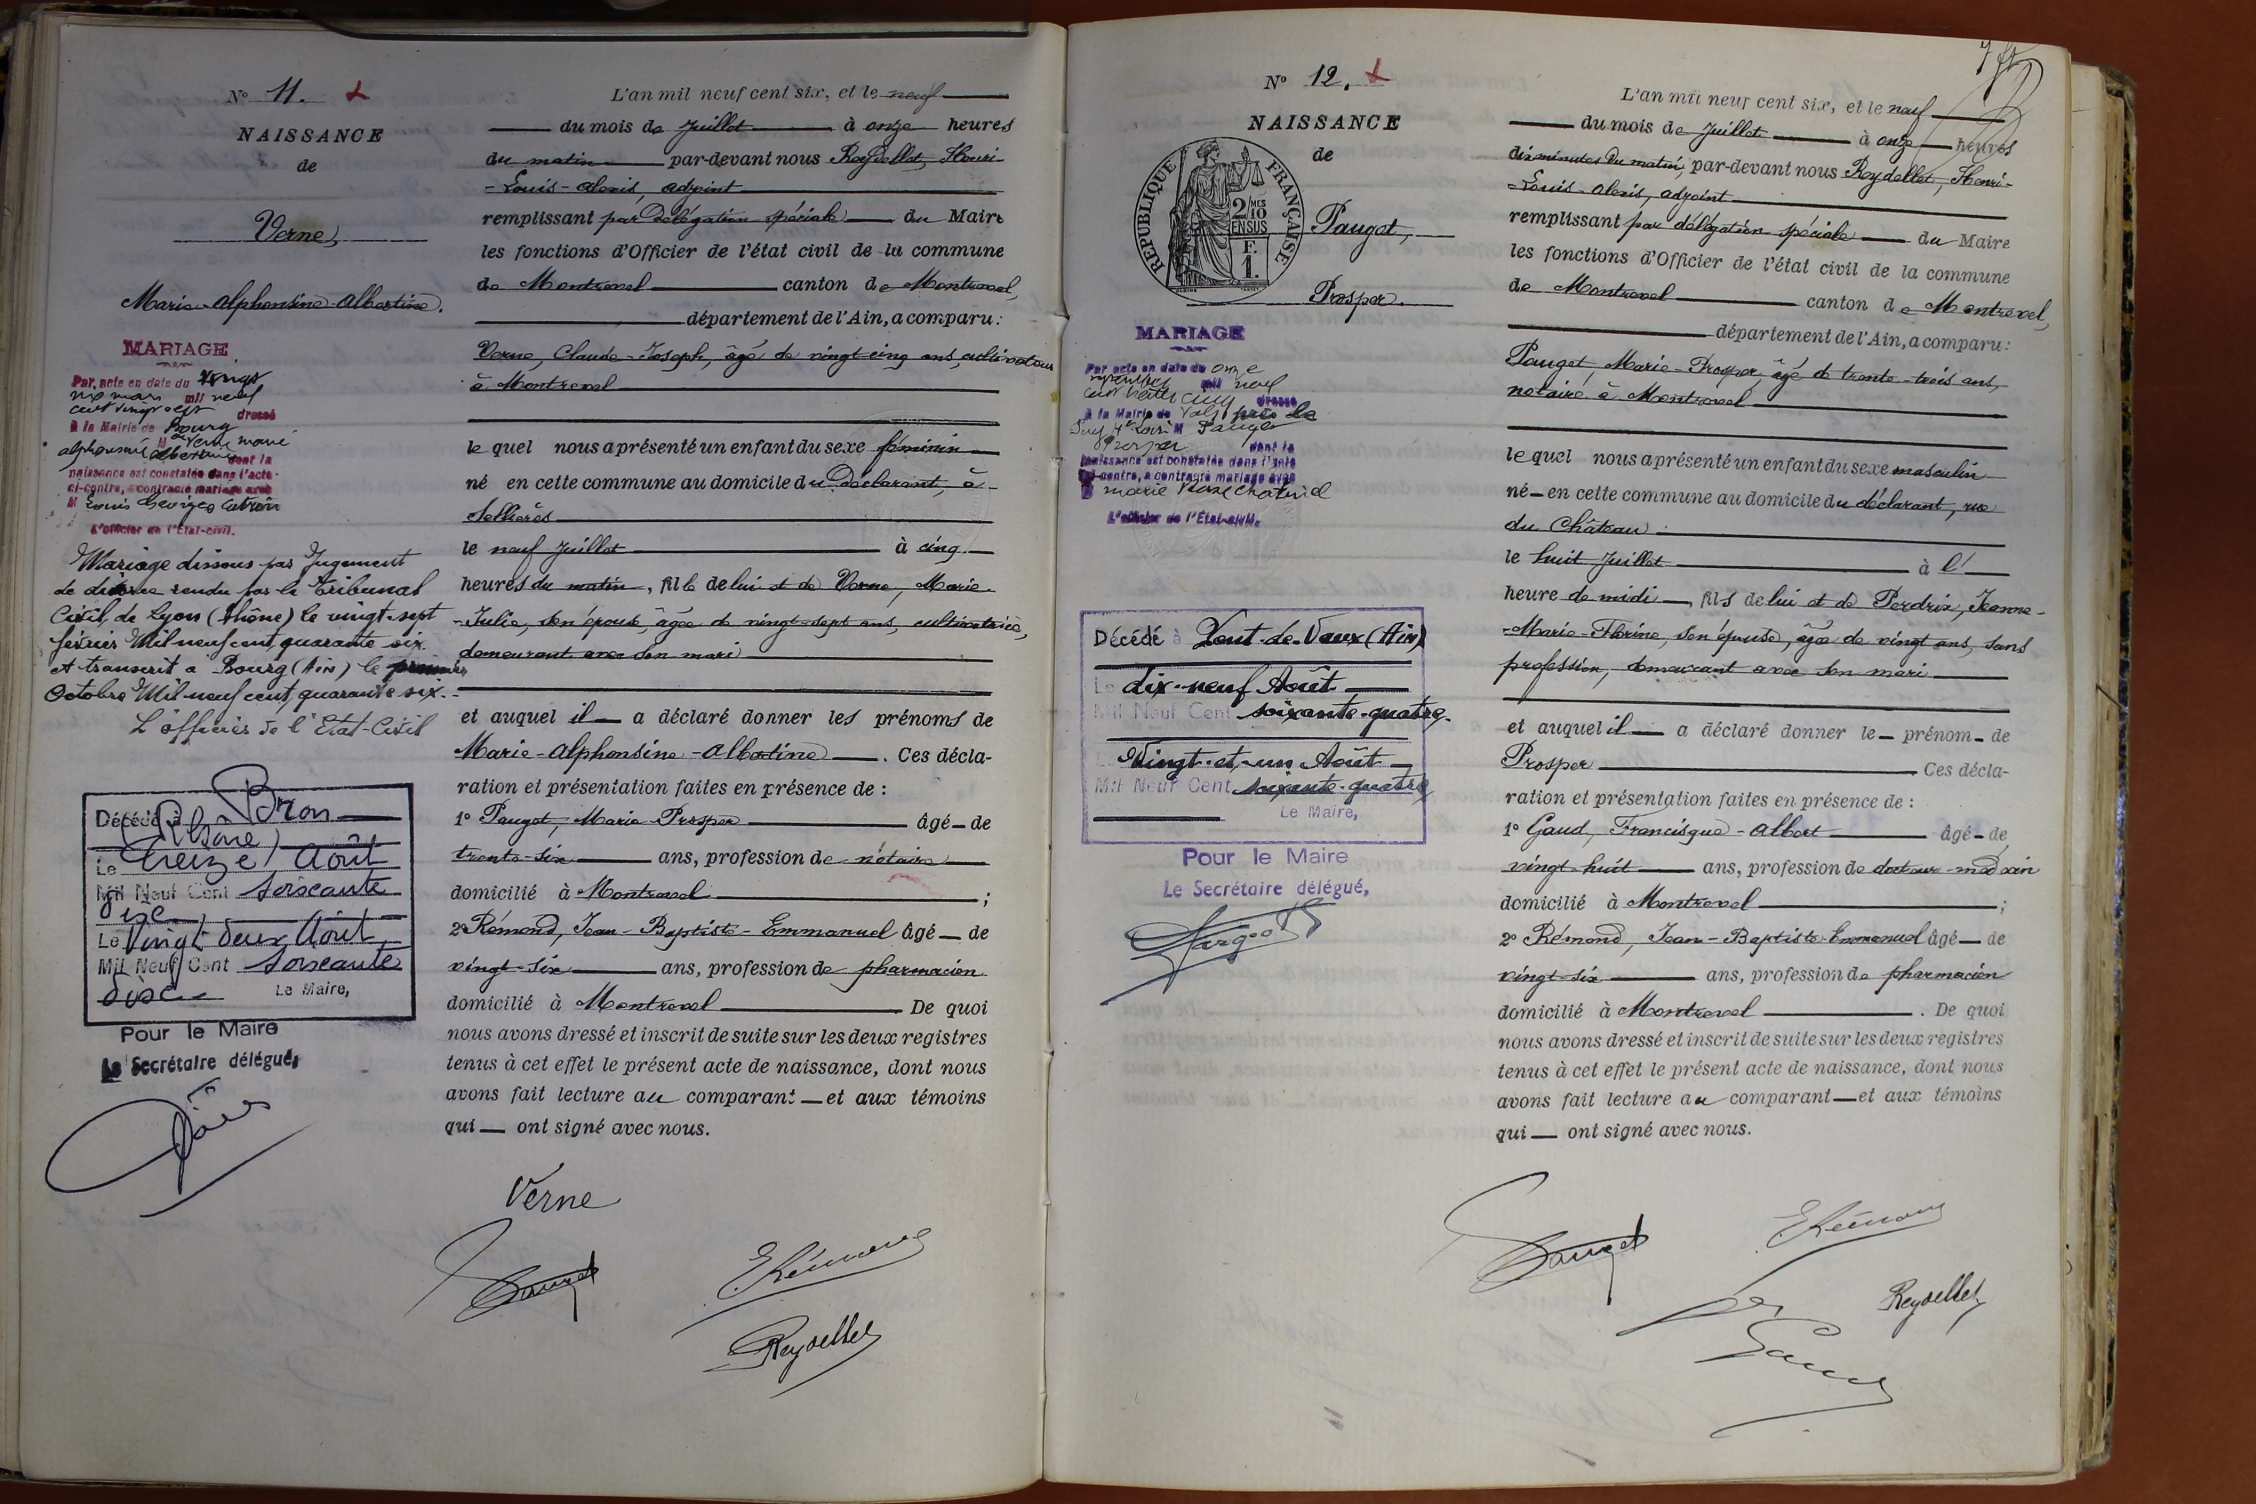 N° 11.
NAISSANCE
de
Verne,
Marie-Alphonsine-Albertine.
MARIAGE
Par acte en date du vingt
six mars mil neuf
cent vingt sept dressé
à la Mairie de Bourg
M Verne marie
alphonsine albertine dont la
naissance est constatée dans l'acte
ci-contre, a contracté mariage avec
M Louis Georges
L'officier de l'État-civil.
Mariage dissous par Jugement
de divorce rendu par le Tribunal
Civil de Lyon (Rhône) le vingt-sept
février Mil neuf cent quarante six
et transcrit à Bourg (Ain) le premier
Octobre Mil neuf cent quarante six.-
L'officier de l'Etat-Civil
Décédé à Bron
(Rhône)
Le treize Août
Mil Neuf Cent soixante
dix
Le Vingt deux Août
Mil Neuf Cent soixante
dix Le Maire,
Pour le Maire
Le Secrétaire délégué,
L'an mil neuf cent six, et le neuf
du mois de Juillet à onze heures
du matin par-devant nous Reydellet, Henri-
-Louis-Alexis, adjoint
remplissant par délégation spéciale du Maire
les fonctions d'Officier de l'état civil de la commune
de Montrevel canton de Montrevel,
département de l'Ain, a comparu:
Verne, Claude-Joseph, âgé de vingt-cinq ans, cultivateur
à Montrevel
le quel nous a présenté un enfant du sexe féminin
né en cette commune au domicile du Déclarant, à
Sellières
le neuf Juillet à cinq
heures du matin, fille de lui et de Verne, Marie-
-Julie, son épouse, âgée de vingt-sept ans, cultivatrice,
demeurant avec son mari
et auquel il a déclaré donner les prénoms de
Marie-Alphonsine-Albertine. Ces décla-
ration et présentation faites en présence de :
1° Pauget, Marie-Prosper âgé de
trente-six ans, profession de notaire
domicilié à Montrevel ;
2° Rémond, Jean-Baptiste-Emmanuel âgé de
vingt-six ans, profession de pharmacien
domicilié à Montrevel De quoi
nous avons dressé et inscrit de suite sur les deux registres
tenus à cet effet le présent acte de naissance, dont nous
avons fait lecture au comparant et aux témoins
qui ont signé avec nous.
Verne
Pauget
E Rémond
Reydellet
N° 12.
NAISSANCE
de
RÉPUBLIQUE FRANÇAISE
2/10MES
EN SUS
F.
1.
Pauget,
Prosper.
MARIAGE
Par acte en date du onze
septembre mil neuf
cent trente cinq dressé
à la Mairie de Vals près le
Puy Hte Loire M Pauget
Prosper dont la
naissance est constatée dans l'acte
ci-contre, a contracté mariage avec
M marie
L'officier de l'État-civil.
Décédé à Pont-de-Vaux (Ain)
Le dix-neuf Août
Mil Neuf Cent soixante-quatre.
Vingt-et-un Août
Mil Neuf Cent soixante-quatre
Le Maire,
Pour le Maire
Le Secrétaire délégué,
L'an mil neuf cent six, et le neuf
du mois de Juillet à onze heures
dix minutes du matin, par-devant nous Reydellet, Henri-
-Louis-Alexis, adjoint
remplissant par délégation spéciale du Maire
les fonctions d'Officier de l'état civil de la commune
de Montrevel canton de Montrevel,
département de l'Ain, a comparu:
Pauget, Marie-Prosper, âgé de trente-trois ans,
notaire à Montrevel
le quel nous a présenté un enfant du sexe masculin
né en cette commune au domicile du déclarant, rue
du Château
le huit Juillet à l'
heure de midi, fils de lui et de Perdrix, Jeanne-
-Marie-Florine, son épouse, âgée de vingt ans, sans
profession, demeurant avec son mari
et auquel il a déclaré donner le prénom de
Prosper Ces décla-
ration et présentation faites en présence de :
1° Gaud, Francisque-Albert âgé de
vingt-huit ans, profession de docteur-médecin
domicilié à Montrevel ;
2° Rémond, Jean-Baptiste-Emmanuel âgé de
vingt-six ans, profession de pharmacien
domicilié à Montrevel. De quoi
nous avons dressé et inscrit de suite sur les deux registres
tenus à cet effet le présent acte de naissance, dont nous
avons fait lecture au comparant et aux témoins
qui ont signé avec nous.
Pauget
E Rémond
Reydellet
Gaud